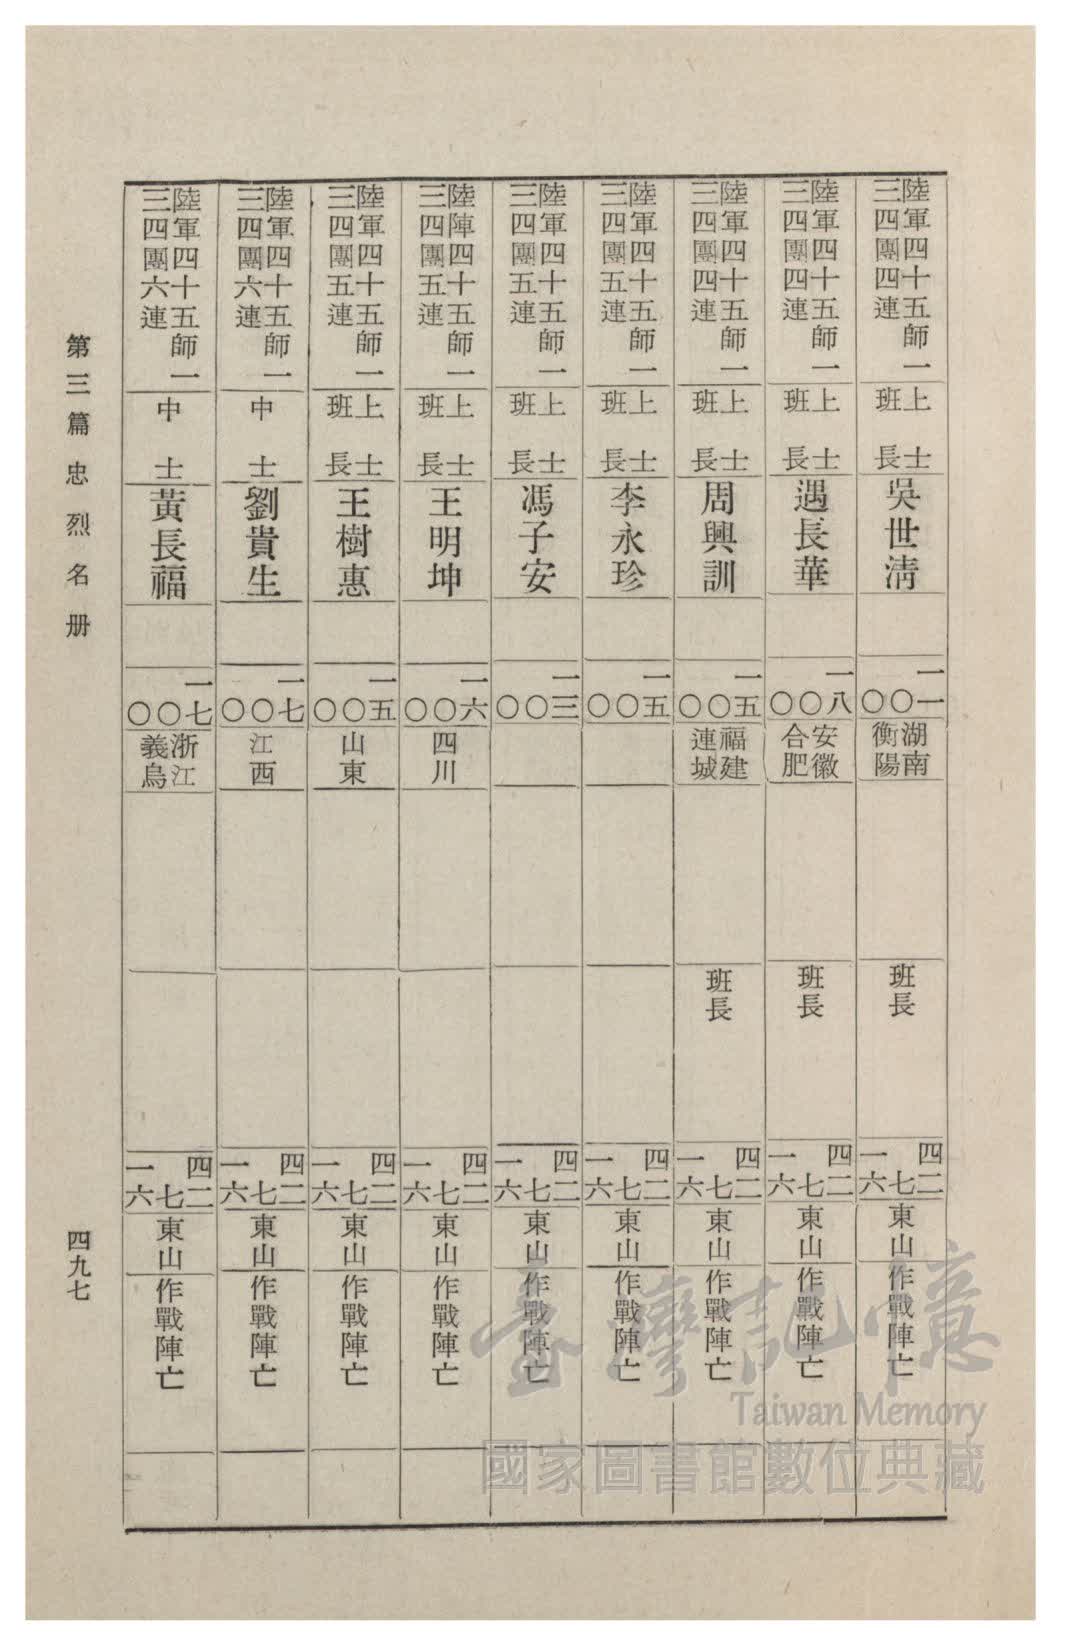 陸軍四十五師一
三四團四連
上士
班長
吳世清
一一
〇
〇
湖南
衡陽
班長
四二
七
一六
東山
作戰陣亡
陸軍四十五師一
三四團四連
上士
班長
遇長華
一八
〇
〇
安徽
合肥
班長
四二
七
一六
東山
作戰陣亡
陸軍四十五師一
三四團四連
上士
班長
周興訓
一五
〇
〇
福建
連城
班長
四二
七
一六
東山
作戰陣亡
陸軍四十五師一
三四團五連
上士
班長
李永珍
一五
〇
〇
四二
七
一六
東山
作戰陣亡
陸軍四十五師一
三四團五連
上士
班長
馮子安
一三
〇
〇
四二
七
一六
東山
作戰陣亡
陸陣四十五師一
三四團五連
上士
班長
王明坤
一六
〇
〇
四川
四二
七
一六
東山
作戰陣亡
陸軍四十五師一
三四團五連
上士
班長
王樹惠
一五
〇
〇
山東
四二
七
一六
東山
作戰陣亡
陸軍四十五師一
三四團六連
中士
劉貴生
一七
〇
〇
江西
四二
七
一六
東山
作戰陣亡
陸軍四十五師一
三四團六連
中士
黃長福
一七
〇
〇
浙江
義烏
四二
七
一六
東山
作戰陣亡
第三篇 忠烈名册
四九七
臺灣記憶
Taiwan Memory
國家圖書館數位典藏